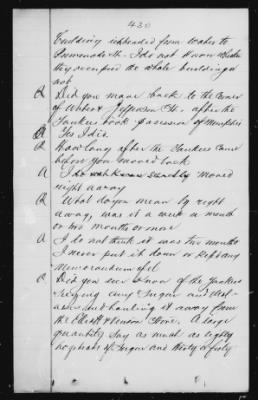 430
building extended from Water to
Promenade St. I do not know whether
they occupied the whole building or
not
Q Did you move back to the Corner
of Water & Jefferson Sts. after the
Yankees took possession of Memphis
A Yes I did.
Q How long after the Yankees came
before you moved back
A I do not know exactly moved
right away
Q What do you mean by right
away, was it a week a month
or two months or more
A I do not think it was two months
I never put it down or kept any
Memorandum of it
Q Did you ever know of the Yankees
seizing any Sugar and Mol-
asses and hauling it away from
the Elliott & Vinson Store. A large
quantity say as much as eighty
hogsheads of Sugar and thirty or forty